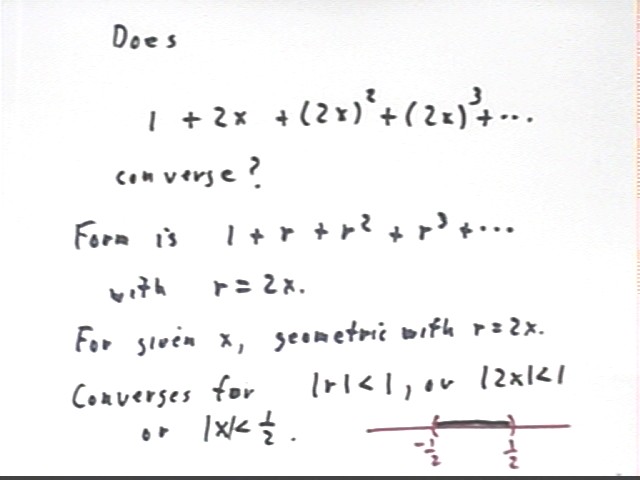 Does
1 + 2x + (2x)² + (2x)³ + ...
converse?
Form is 1 + r + r² + r³ + ...
with r = 2x.
For given x, geometric with r = 2x.
Converges for |r| < 1, or |2x| < 1
or |x| < 1/2.
-1/2 1/2